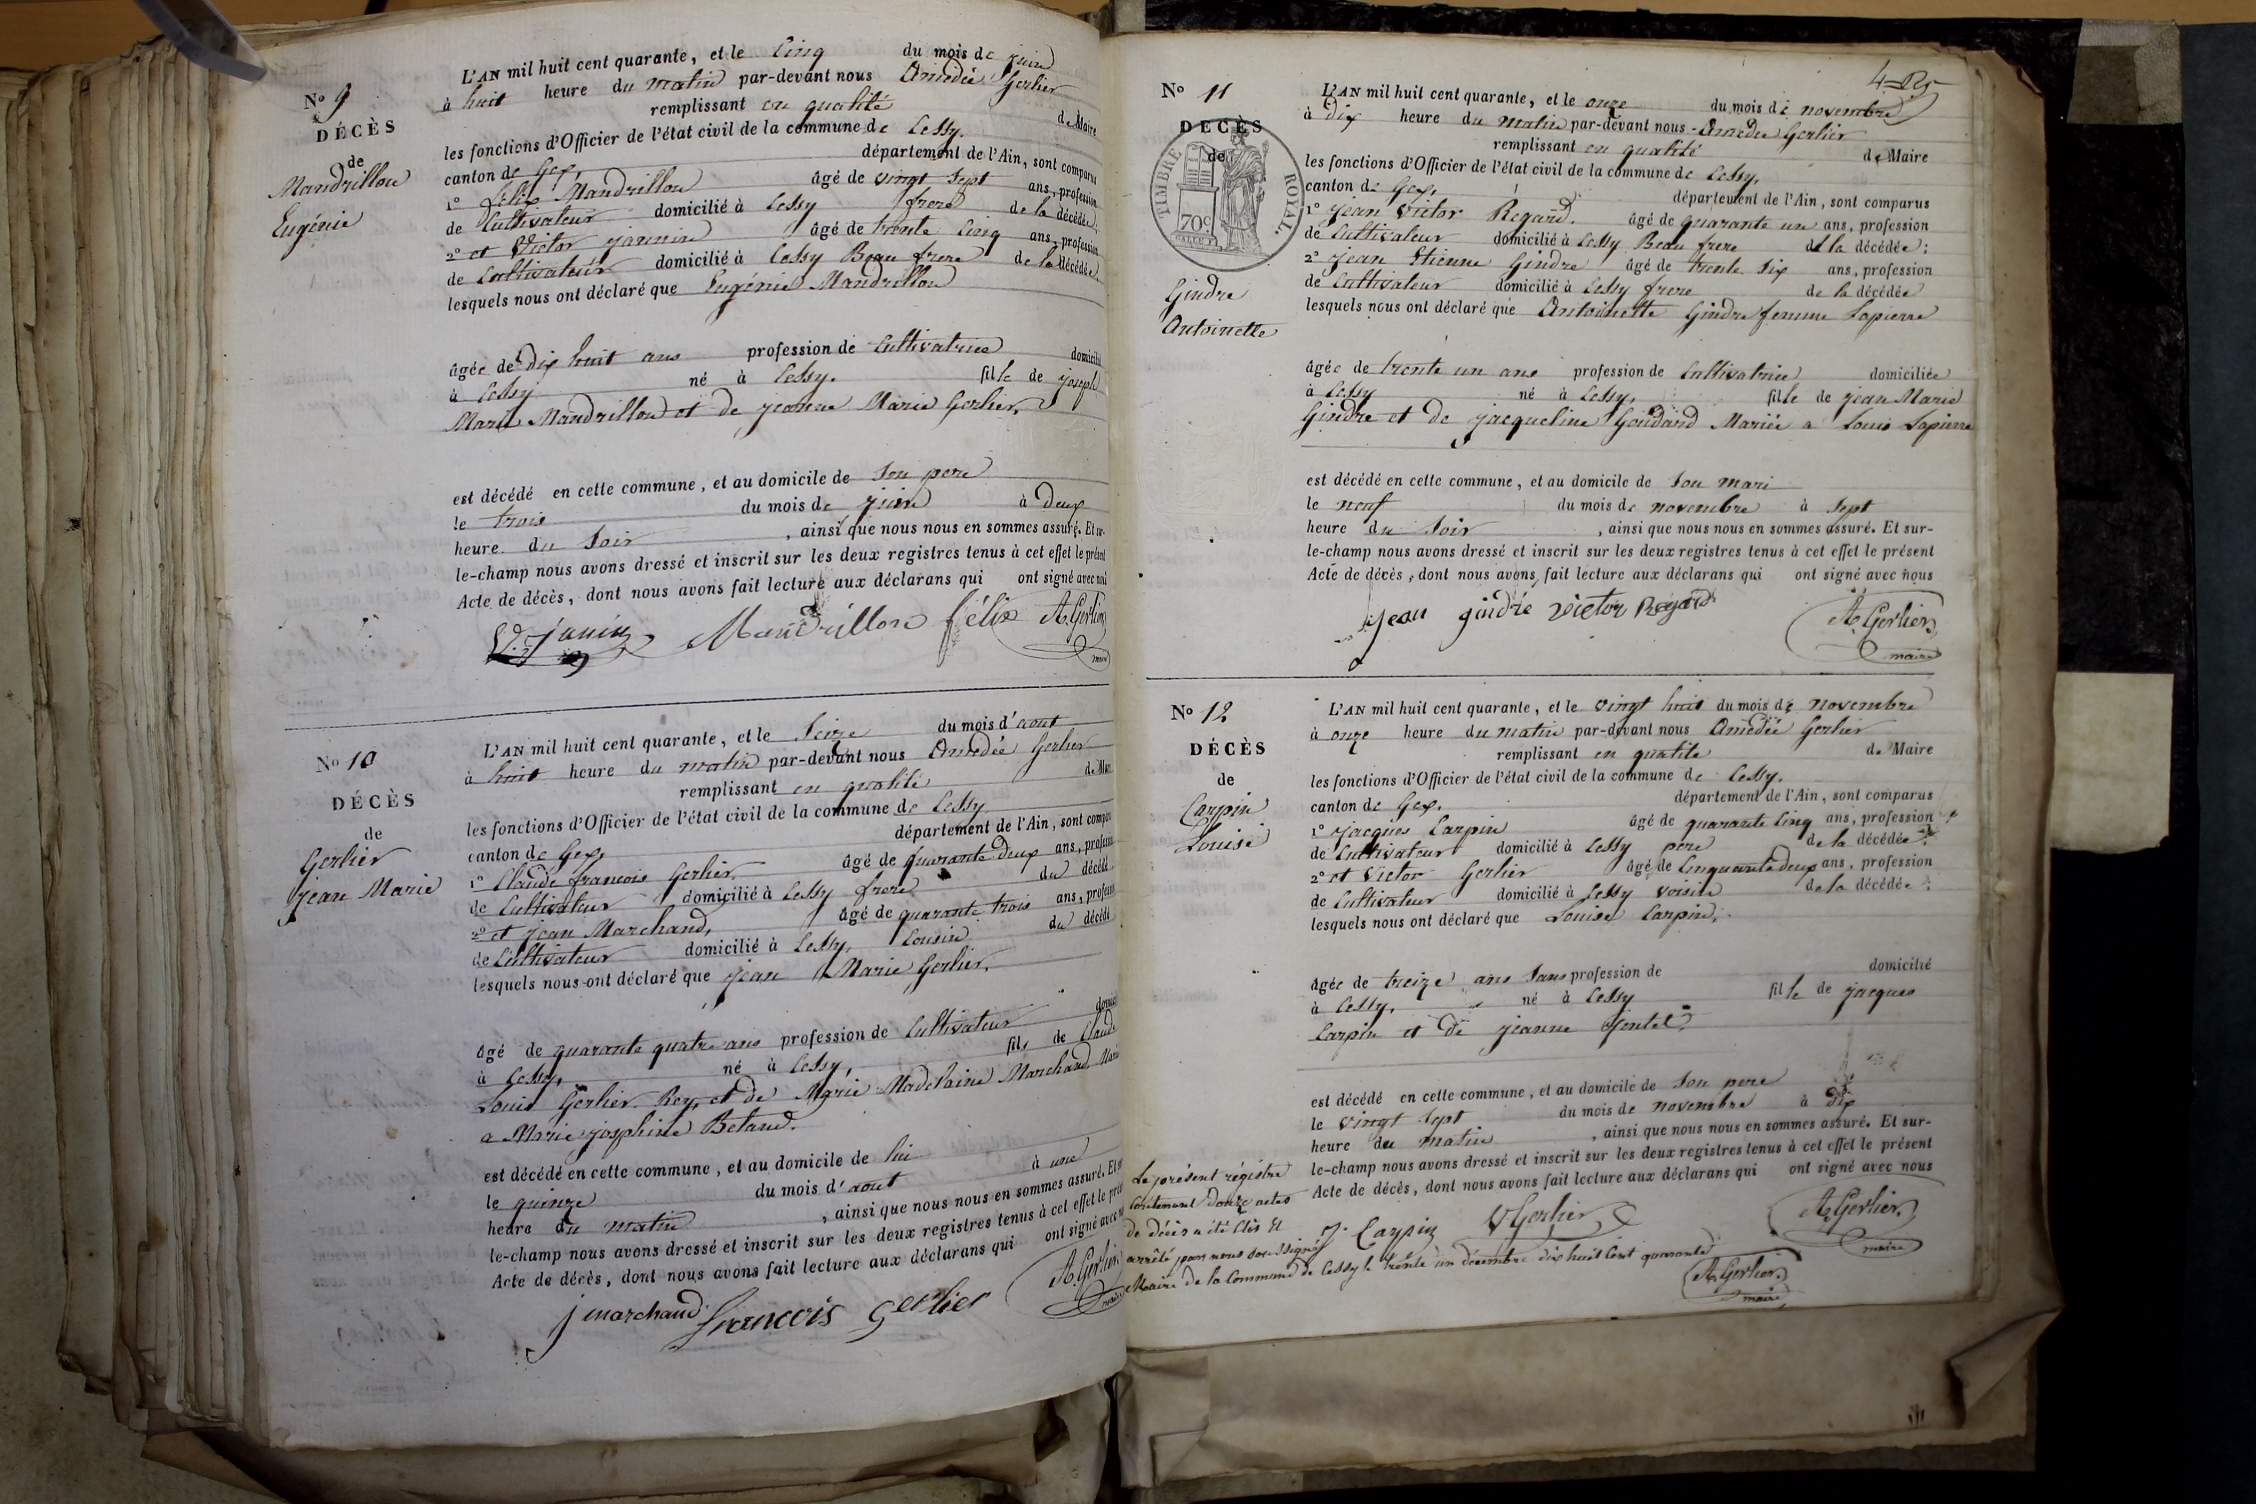 No 9
DÉCÈS
de
Mandrillon
Eugénie
L'AN mil huit cent quarante, et le Cinq du mois de juin
à huit heure du matin par-devant nous Amedée Gerlier
remplissant en qualité de Maire
les fonctions d'Officier de l'état civil de la commune de Cessy.
canton de Gex, département de l'Ain, sont comparus
1o félix Mandrillon âgé de vingt Sept ans, profession
de Cultivateur domicilié à Cessy frere de la décédée;
2o et Victor jannin âgé de trente Cinq ans, profession
de Cultivateur domicilié à Cessy Beau frere de la décédée
lesquels nous ont déclaré que Eugénie Mandrillon
âgée de Dix huit ans profession de Cultivatrice domicilié
à Cessy né à Cessy. fille de joseph
Marie Mandrillon et de jeanne Marie Gerlier,
est décédé en cette commune, et au domicile de Son pere
le trois du mois de juin à deux
heure du Soir, ainsi que nous nous en sommes assuré. Et sur-
le-champ nous avons dressé et inscrit sur les deux registres tenus à cet effet le présent
Acte de décès, dont nous avons fait lecture aux déclarans qui ont signé avec nous
V. Janin Mandrillon félix A. Gerlier
maire
No 10
DÉCÈS
de
Gerlier
jean Marie
L'AN mil huit cent quarante, et le Seize du mois d'aout
à huit heure du matin par-devant nous Amedée Gerlier
remplissant en qualité de Maire
les fonctions d'Officier de l'état civil de la commune de Cessy
canton de Gex, département de l'Ain, sont comparus
1o Claude francois Gerlier, âgé de quarante deux ans, profession
de Cultivateur domicilié à Cessy frere du décédé
2o et jean Marchand, âgé de quarante trois ans, profession
de Cultivateur domicilié à Cessy, Cousin du décédé
lesquels nous ont déclaré que jean Marie Gerlier,
âgé de quarante quatre ans profession de Cultivateur domicilié
à Cessy, né à Cessy, fils de Claude
Louis Gerlier Rey, et de Marie Madelaine Marchand, Marié
a Marie josphine Betand.
est décédé en cette commune, et au domicile de lui
le quinze du mois d'aout à une
heure du matin, ainsi que nous nous en sommes assuré. Et sur-
le-champ nous avons dressé et inscrit sur les deux registres tenus à cet effet le présent
Acte de décès, dont nous avons fait lecture aux déclarans qui ont signé avec nous
j marchand francois gerlier A. Gerlier
maire
No 11
DÉCÈS
de
TIMBRE ROYAL.
70c
Gindre
Antoinette
L'AN mil huit cent quarante, et le onze du mois de novembre
à Dix heure du matin par-devant nous Amedée Gerlier
remplissant en qualité de Maire
les fonctions d'Officier de l'état civil de la commune de Cessy,
canton de Gex, département de l'Ain, sont comparus
1o jean Victor Regard. âgé de quarante un ans, profession
de Cultivateur domicilié à Cessy Beau frere de la décédée;
2o jean Etienne Gindre âgé de trente Six ans, profession
de Cultivateur domicilié à Cessy frere de la décédée
lesquels nous ont déclaré que Antoinette Gindre femme Lapierre
âgée de trente un ans profession de Cultivatrice domiciliée
à Cessy né à Cessy, fille de jean Marie
Gindre et de jacqueline Goudard Mariée a Louis Lapierre
est décédé en cette commune, et au domicile de Son mari
le neuf du mois de novembre à Sept
heure du Soir, ainsi que nous nous en sommes assuré. Et sur-
le-champ nous avons dressé et inscrit sur les deux registres tenus à cet effet le présent
Acte de décès, dont nous avons fait lecture aux déclarans qui ont signé avec nous
jean gindre victor Regard A. Gerlier
maire
No 12
DÉCÈS
de
Carpin
Louise
L'AN mil huit cent quarante, et le vingt huit du mois de novembre
à onze heure du matin par-devant nous Amedée Gerlier
remplissant en qualité de Maire
les fonctions d'Officier de l'état civil de la commune de Cessy.
canton de Gex. département de l'Ain, sont comparus
1o jacques Carpin âgé de quarante Cinq ans, profession
de Cultivateur domicilié à Cessy pere de la décédée;
2o et Victor Gerlier âgé de Cinquante deux ans, profession
de Cultivateur domicilié à Cessy voisin de la décédée;
lesquels nous ont déclaré que Louise Carpin,
âgée de treize ans Sans profession de domicilié
à Cessy, né à Cessy fille de jacques
Carpin et de jeanne
est décédé en cette commune, et au domicile de Son pere
le vingt Sept du mois de novembre à dix
heure du matin, ainsi que nous nous en sommes assuré. Et sur-
le-champ nous avons dressé et inscrit sur les deux registres tenus à cet effet le présent
Acte de décès, dont nous avons fait lecture aux déclarans qui ont signé avec nous
J. Carpin V Gerlier A. Gerlier,
maire
Le présent régistre
Contenant douze actes
de décès a été Clos et
arrêté par nous Soussigné
Maire de la Commune de Cessy le trente un décembre dix huit Cent quarante
A. Gerlier.
maire